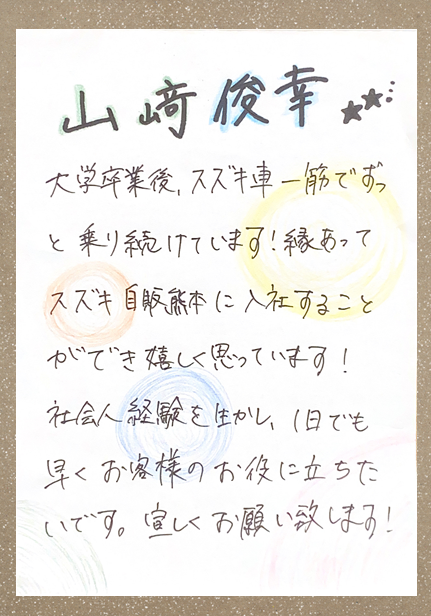 山﨑 俊幸
大学卒業後、スズキ車一筋でずっ
と乗り続けています!縁あって
スズキ自販熊本に入社すること
ができ嬉しく思っています!
社会人経験を生かし、1日でも
早くお客様のお役に立ちた
いです。宜しくお願い致します!